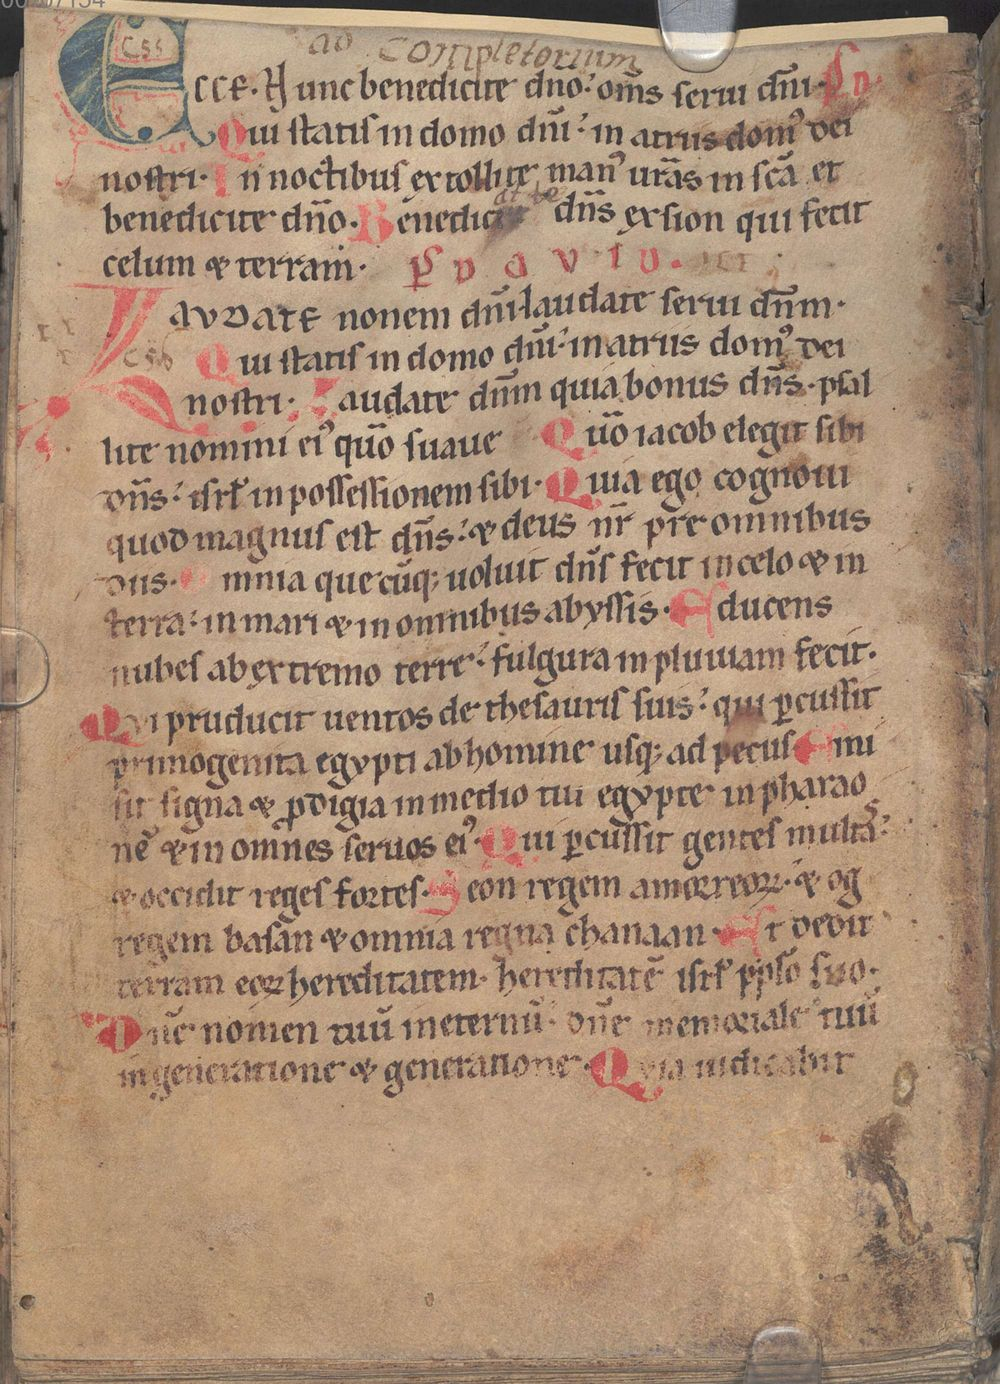 ad Completorium
ECCE. Nunc benedicite dno: om̄s serui dn̄i. Ps D.
Qui statis in domo dn̄i: in atriis domꝰ dei
nostri. In noctibus extollite manꝰ ur̄as in sc̄a et
benedicite dn̄o. Benedicat te dn̄s ex sion qui fecit
celum & terram. Ps D A V I D.
LAVDATE nomen dn̄i laudate serui dn̄m.
Qui statis in domo dn̄i: in atriis domꝰ dei
nostri. Laudate dn̄m quia bonus dn̄s. psal
lite nomini eiꝰ quō suaue Qūo iacob elegit sibi
dn̄s: isrl̄ in possessionem sibi. Quia ego cognoui
quod magnus est dn̄s: & deus nr̄ pre omnibus
diis. Omnia quecūq; uoluit dn̄s fecit in celo & in
terra: in mari & in omnibus abyssis. Educens
nubes ab extremo terre: fulgura in pluuiam fecit.
Qvi pruducit uentos de thesauris suis: qui ꝑcussit
primogenita egypti ab homine usq; ad pecus Emi
sit signa & ꝓdigia in medio tui egypte in pharao
nē & in omnes seruos eiꝰ. Qui ꝑcussit gentes multas:
& occidit reges fortes. Seon regem amorreoꝝ. & og
regem basan & omnia regna chanaan. Et dedit
terram eoꝝ hereditatem. hereditatē isrl̄ pplo suo.
Dn̄e nomen tuū in eternū. dn̄e memoriale tuū
in generatione & generatione. Qvia iudicabit